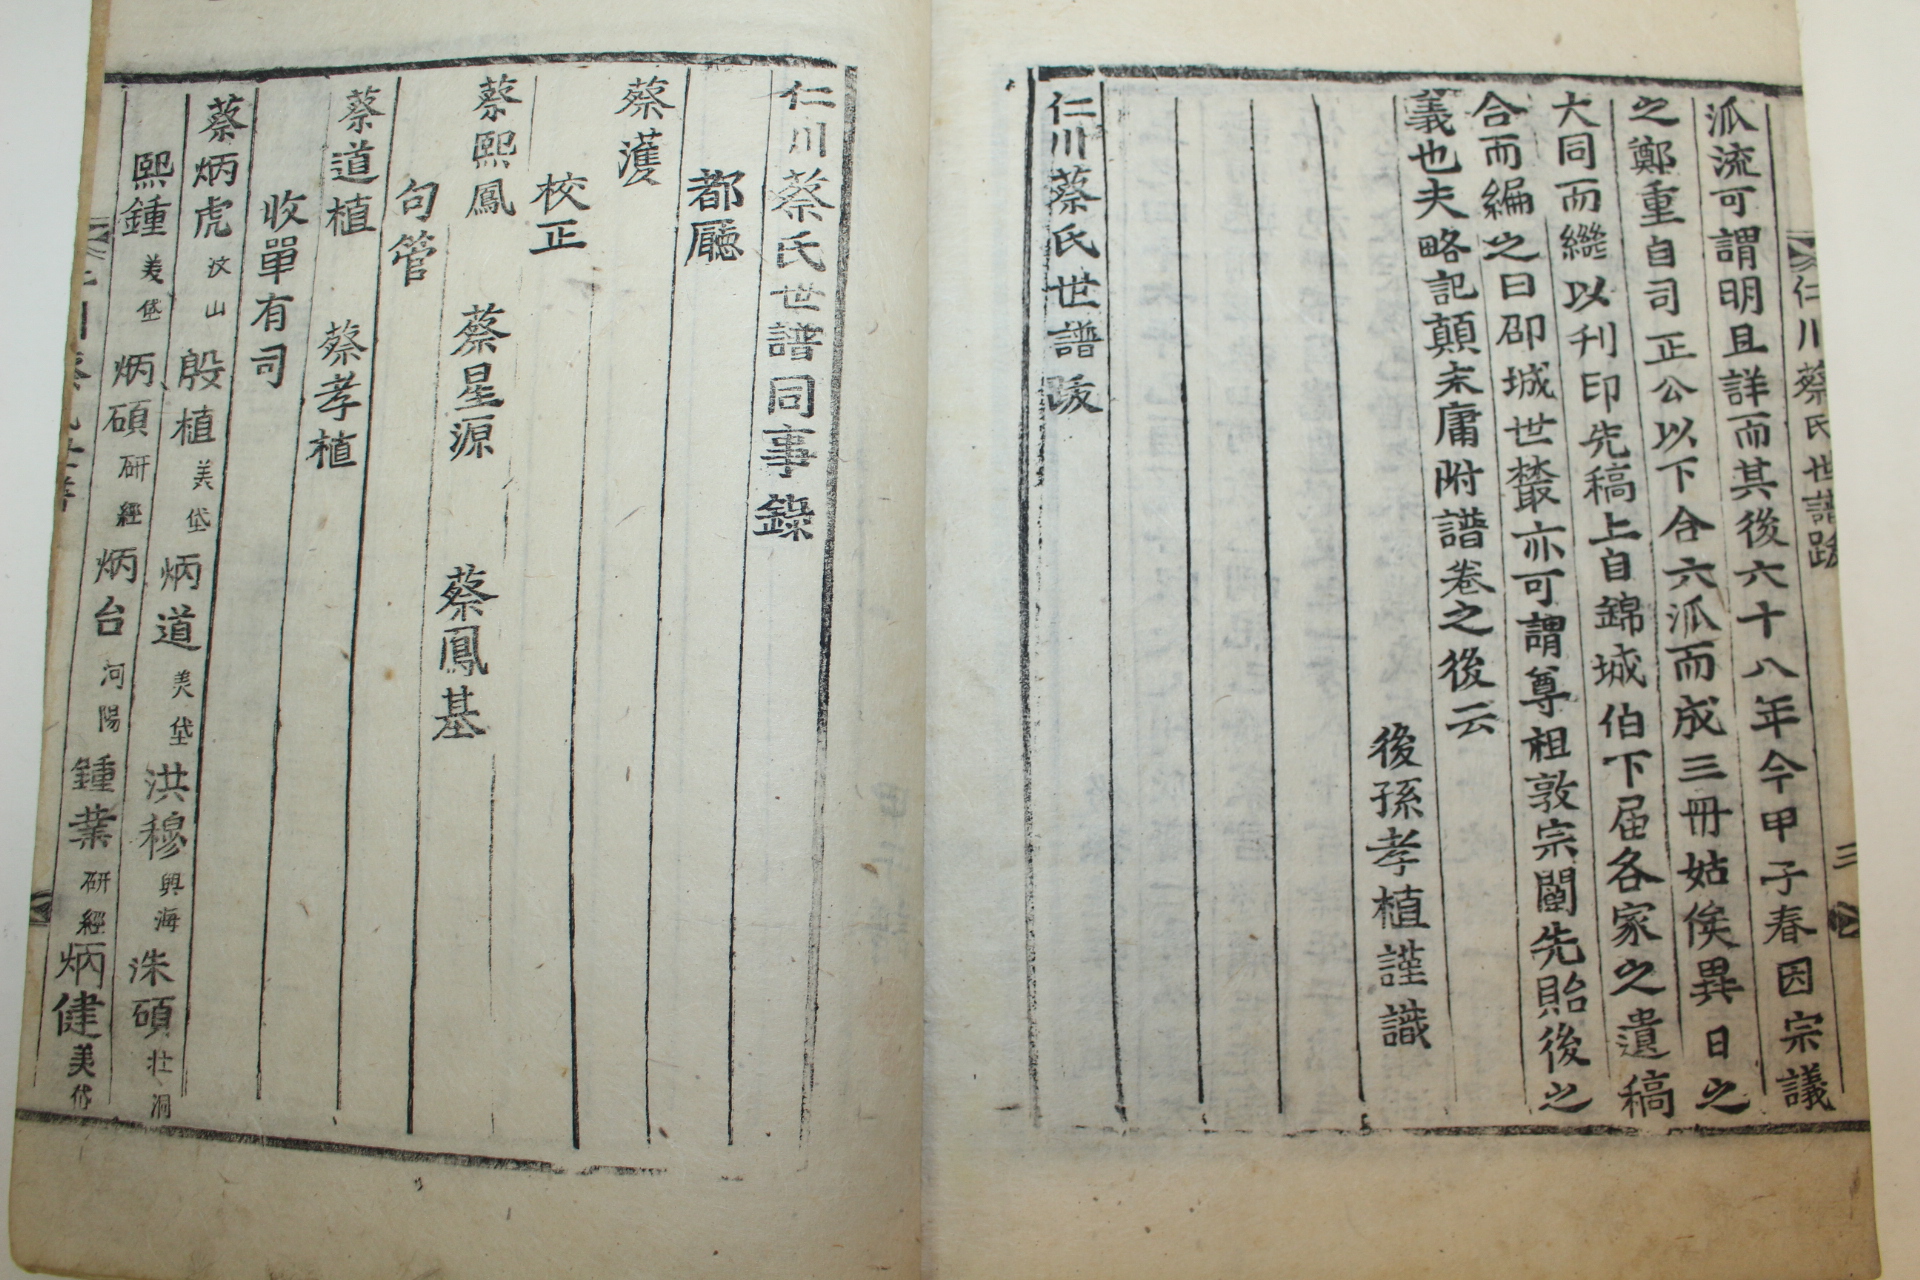 仁川蔡氏世譜跋 三
派流可謂明且詳而其後六十八年今甲子春因宗議
之鄭重自司正公以下合六派而成三冊姑俟異日之
大同而繼以刊印先稿上自錦城伯下届各家之遺稿
合而編之曰邵城世䕺亦可謂尊祖敦宗闡先貽後之
義也夫略記顛末庸附譜卷之後云
後孫孝植謹識
仁川蔡氏世譜跋
仁川蔡氏世譜同事錄
都廳
蔡濩
校正
蔡熙鳳 蔡星源 蔡鳳基
句管
蔡道植 蔡孝植
收單有司
蔡炳虎 汶山 殷植 美垈 炳道 美垈 洪穆 興海 洙碩 壯洞
熙鍾 美垈 炳碩 硏經 炳台 河陽 鍾業 硏經 炳健 美垈